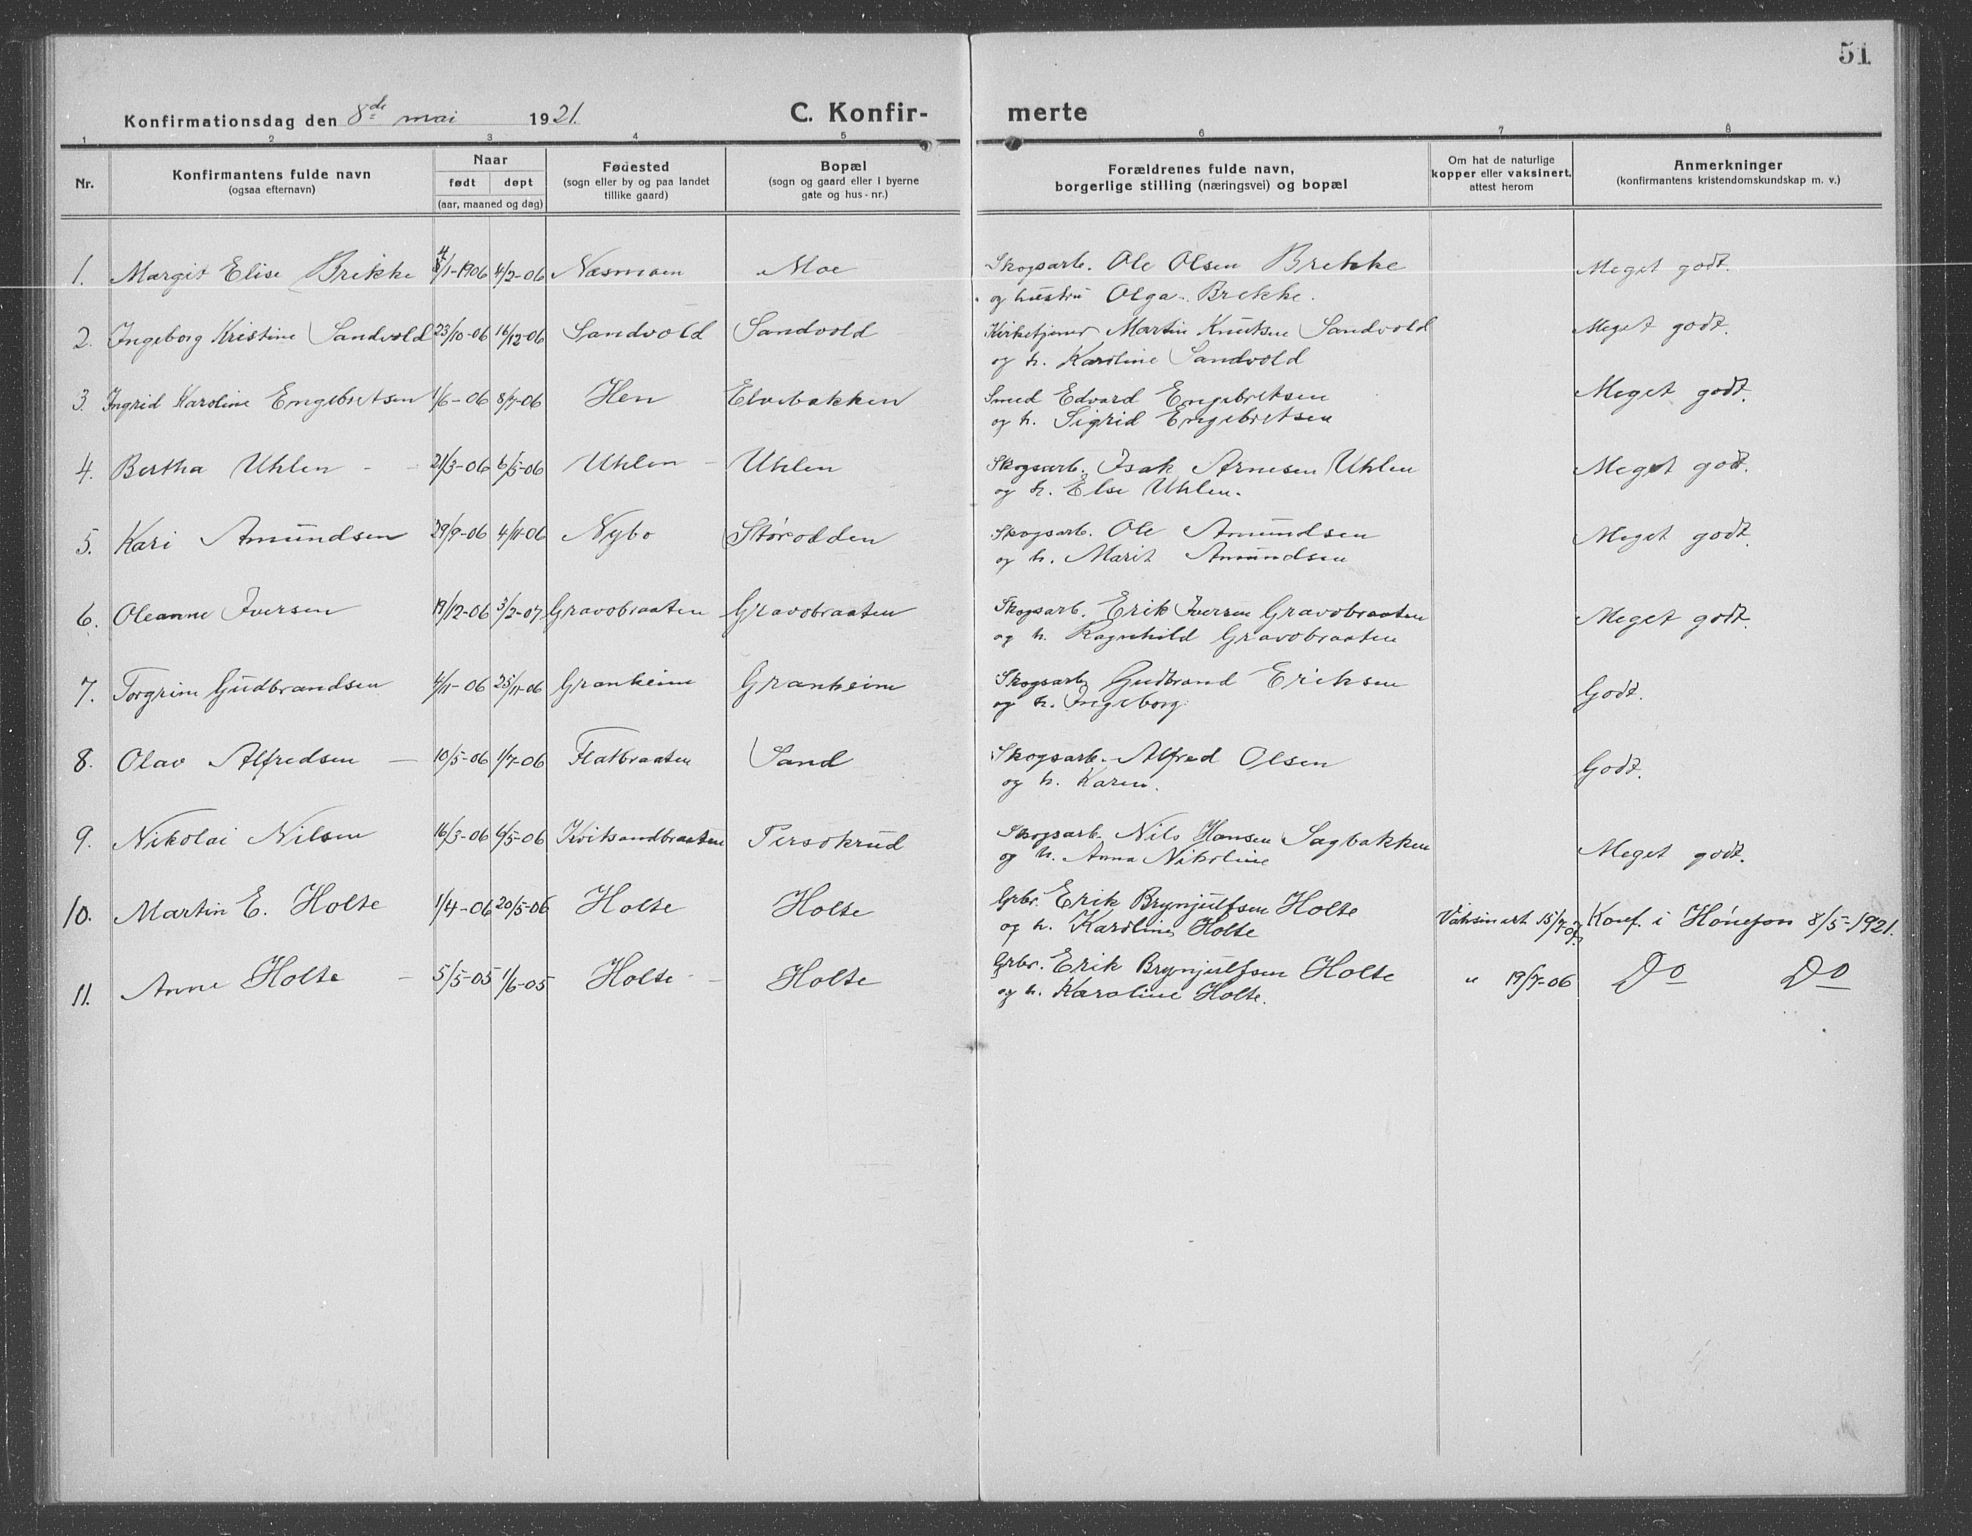 51
Konfirmationsdag den 8de mai 1921. C. Konfir- merte
1 2 3 4 5 6 7 8
Nr. Konfirmantens fulde navn (ogsaa efternavn) Naar født døpt (aar, maaned og dag) Fødested (sogn eller by og paa landet tillike gaard) Bopæl (sogn og gaard eller i byerne gate og hus-nr.) Forældrenes fulde navn, borgerlige stilling (næringsvei) og bopæl Om hat de naturlige kopper eller vaksinert, attest herom Anmerkninger (konfirmantens kristendomskundskap m. v.)
1. Margit Elise Brekke /1-1906 4/2-06 Næsmoen Moe Skogsarb. Ole Olsen Brekke Meget godt.
og hustru Olga Brekke.
2. Ingeborg Kristine Sandvold 23/10-06 16/12-06 Sandvold Sandvold Kirketjener Martin Knutsen Sandvold Meget godt.
og h. Karoline Sandvold
3. Ingrid Karoline Engebretsen 1/6-06 8/7-06 Hen Elvebakken Smed Edvard Engebretsen Meget godt.
og h. Sigrid Engebretsen
4. Bertha Uhlen - 21/3-06 6/5-06 Uhlen - Uhlen Skogsarb. Isak Arnesen Uhlen Meget godt.
og h. Else Uhlen.
5. Kari Amundsen 29/9-06 4/11-06 Nybo Størodden Skogsarb. Ole Amundsen Meget godt.
og h. Marit Amundsen
6. Oleanne Iversen 19/12-06 3/2-07 Gravobraaten Gravobraaten Skogsarb. Erik Iversen Gravobraaten Meget godt.
og h. Ragnhild Gravobraaten
7. Torgrim Gudbrandsen 4/11-06 25/11-06 Granheim Granheim Skogsarb. Gudbrand Eriksen Godt.
og h. Ingeborg
8. Olav Alfredsen - 10/5-06 1/7-06 Flatbraaten Sand Skogsarb. Alfred Olsen Godt.
og h. Karen.
9. Nikolai Nilsen 16/3-06 6/5-06 Kviksandbraaten Persokrud Skogsarb. Nils Hansen Sagbakken Meget godt.
og h. Anna Nikoline
10. Martin E. Holte 1/4-06 20/5-06 Holte Holte Grbr. Erik Brynjulfsen Holte Vaksin. att. 15/7- Konf. i Hønefoss 8/5-1921.
og h. Karoline Holte
11. Anne Holte - 5/5-05 1/6-05 Holte - Holte Grbr. Erik Brynjulfsen Holte " 19/7-06 Do Do
og h. Karoline Holte.